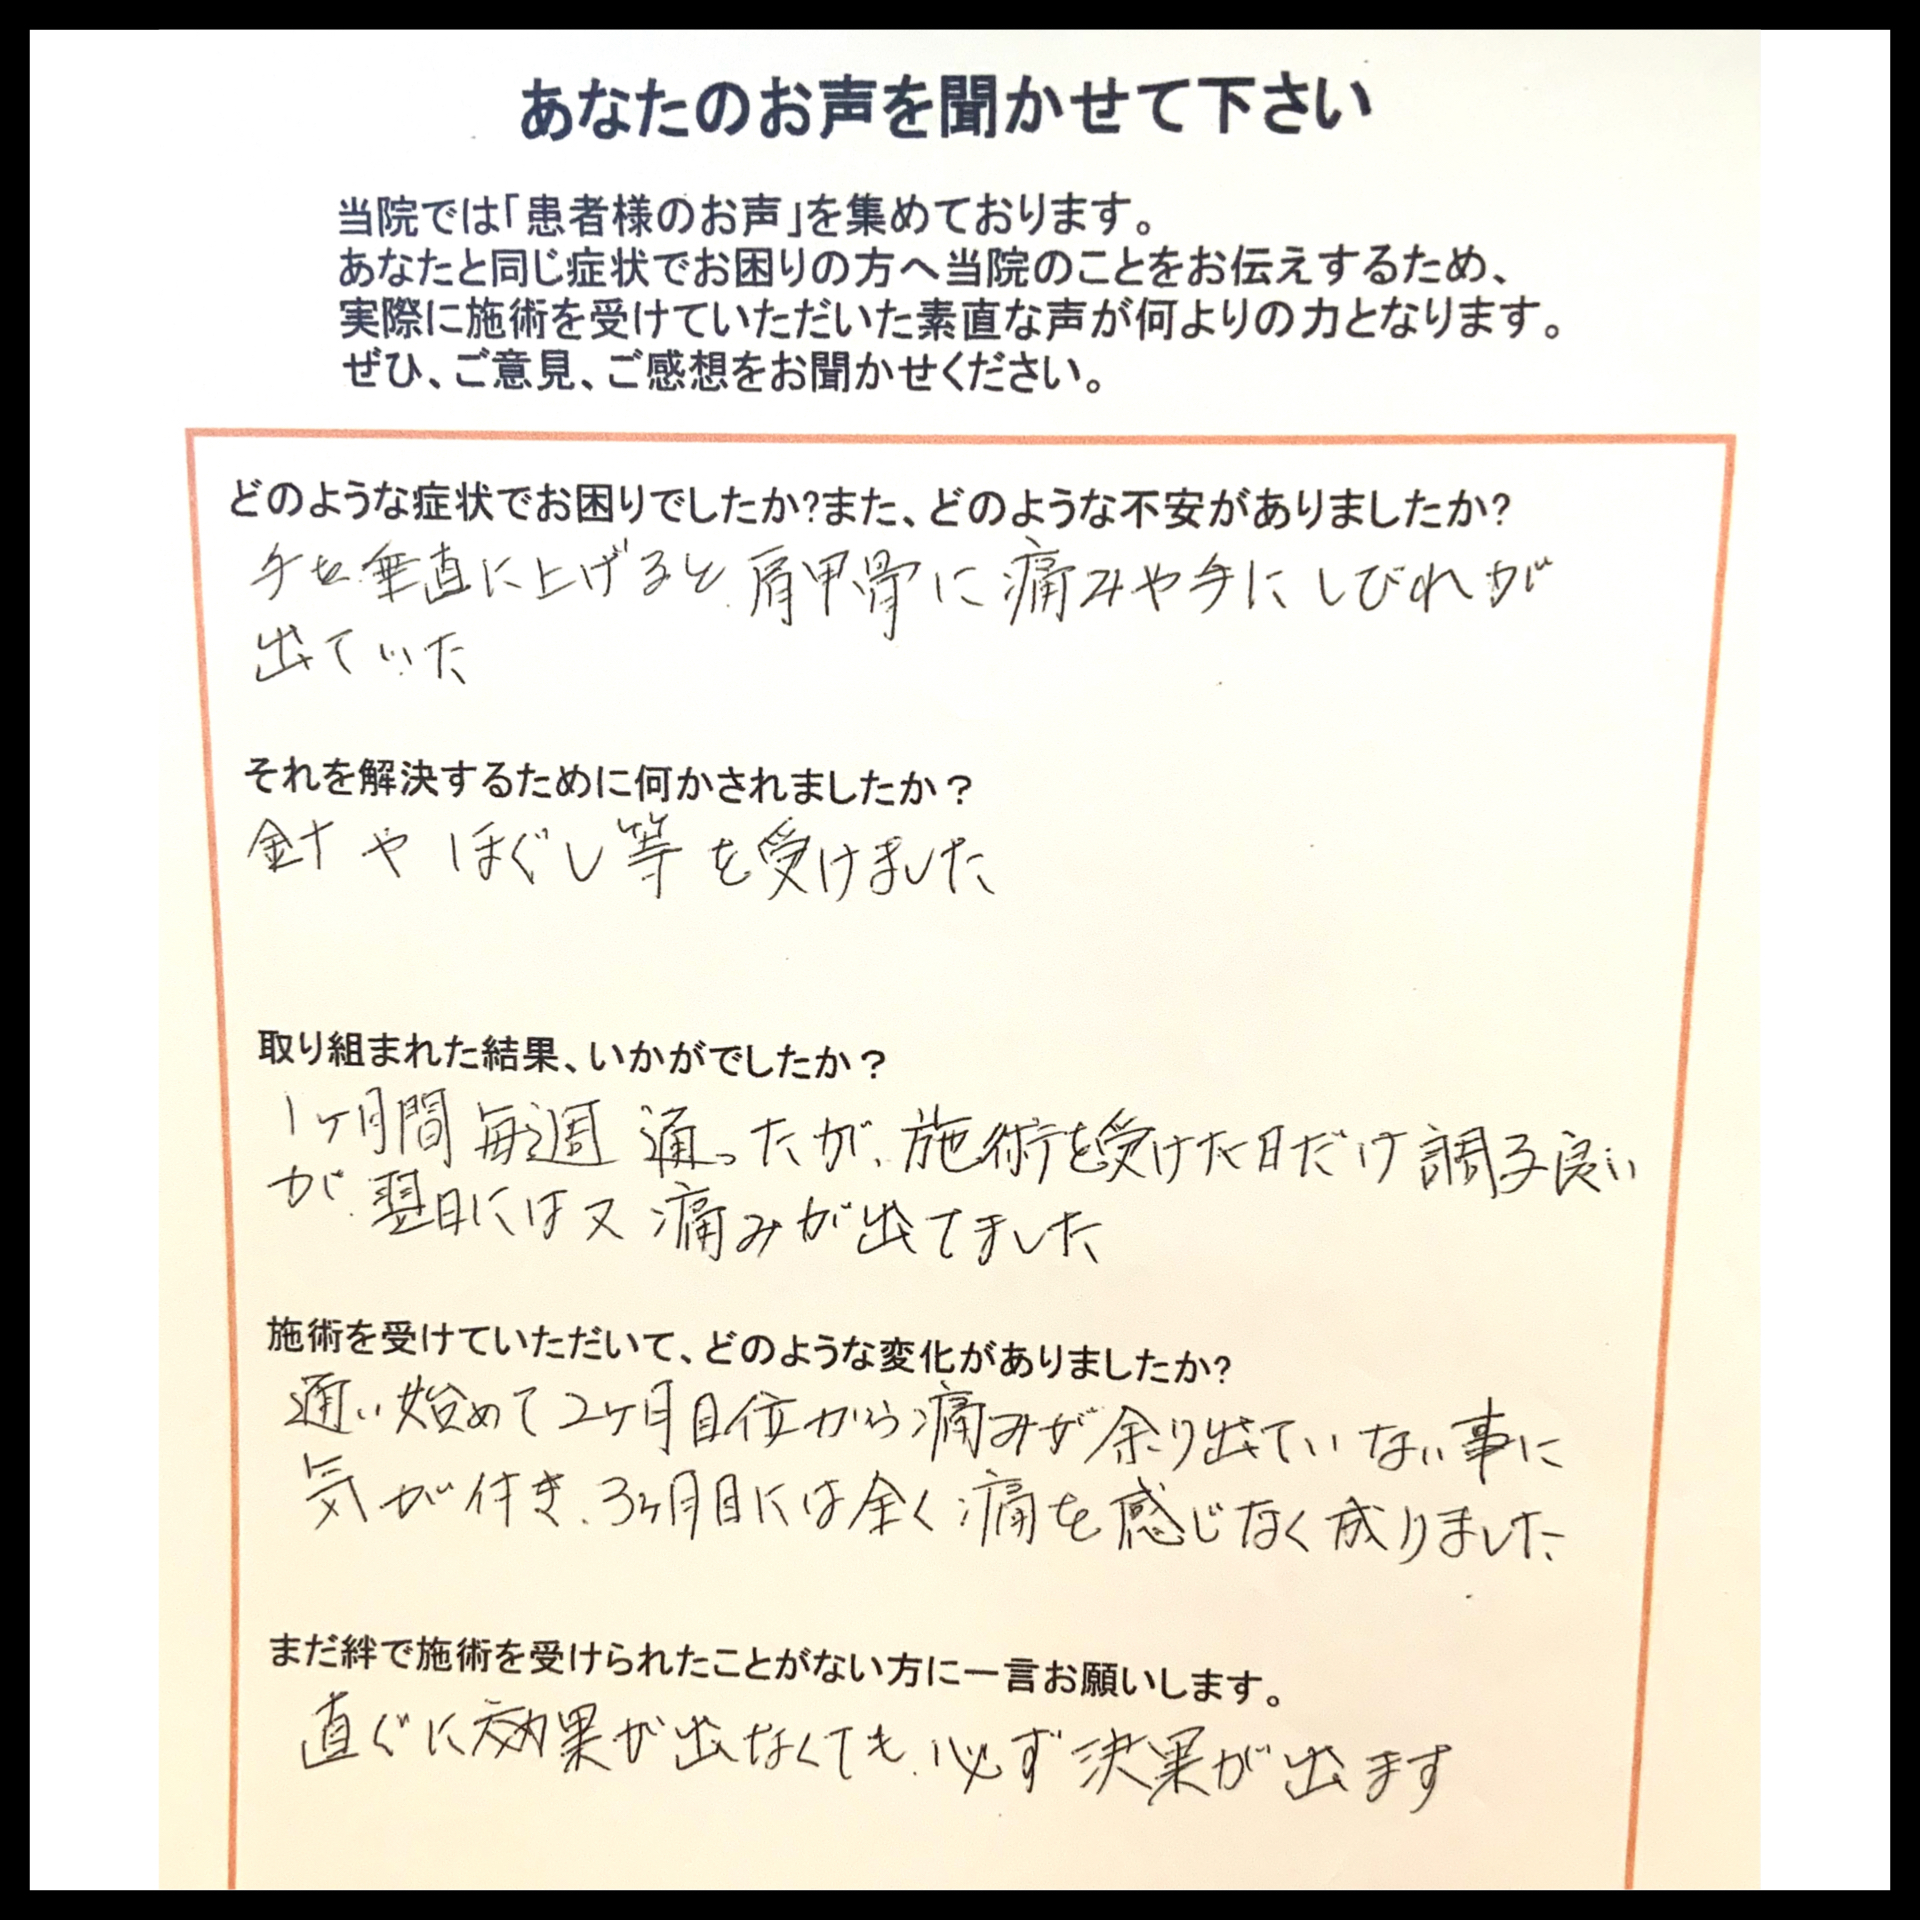 あなたのお声を聞かせて下さい
当院では「患者様のお声」を集めております。
あなたと同じ症状でお困りの方へ当院のことをお伝えするため、
実際に施術を受けていただいた素直な声が何よりの力となります。
ぜひ、ご意見、ご感想をお聞かせください。
どのような症状でお困りでしたか?また、どのような不安がありましたか?
手を垂直に上げると肩甲骨に痛みや手にしびれが
出ていた
それを解決するために何かされましたか？
針やほぐし等を受けました
取り組まれた結果、いかがでしたか？
1ヶ月間毎週通ったが、施術を受けた日だけ調子良い
が、翌日には又痛みが出てました
施術を受けていただいて、どのような変化がありましたか?
通い始めて2ヶ月目位から痛みが余り出ていない事に
気が付き、3ヶ月目には全く痛を感じなく成りました
まだ絆で施術を受けられたことがない方に一言お願いします。
直ぐに効果が出なくても、必ず決果が出ます